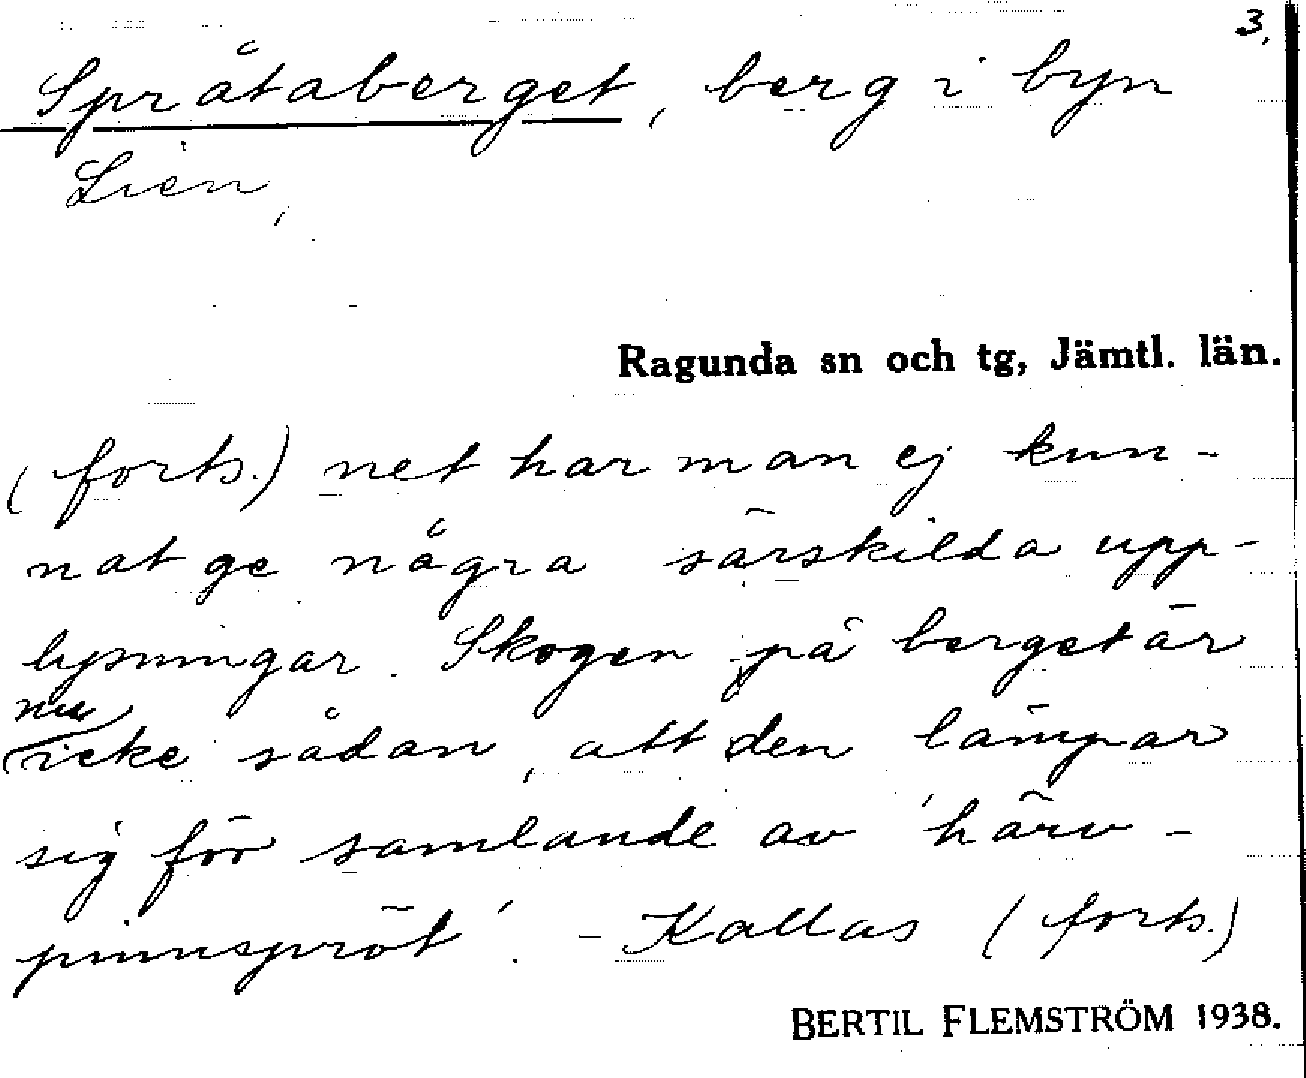 3.
Språtaberget, berg i byn
Lien,
Ragunda sn och tg, Jämtl. län.
(forts.) net har man ej kun-
nat ge några särskilda upp-
lysningar. Skogen på berget är
nu
icke sådan, att den lämpar
sig för samlande av 'härv-
pinnspröt'. - Kallas (forts.)
BERTIL FLEMSTRÖM 1938.